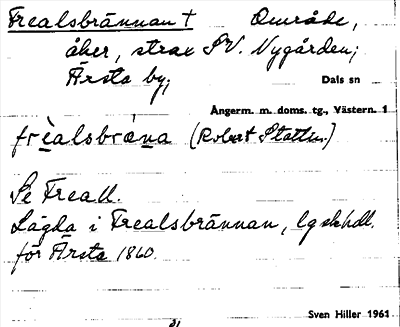 Frealsbrännan † Område,
åker, strax SV. Nygården;
Ärsta by;
Dals sn
Ångerm. m. doms. tg., Västern. 1
frèalsbrǽna (Robert Stattin.)
Se Freall.
Lägda i Frealsbrännan, lgskhdl.
för Ärsta 1860.
Sven Hiller 1961